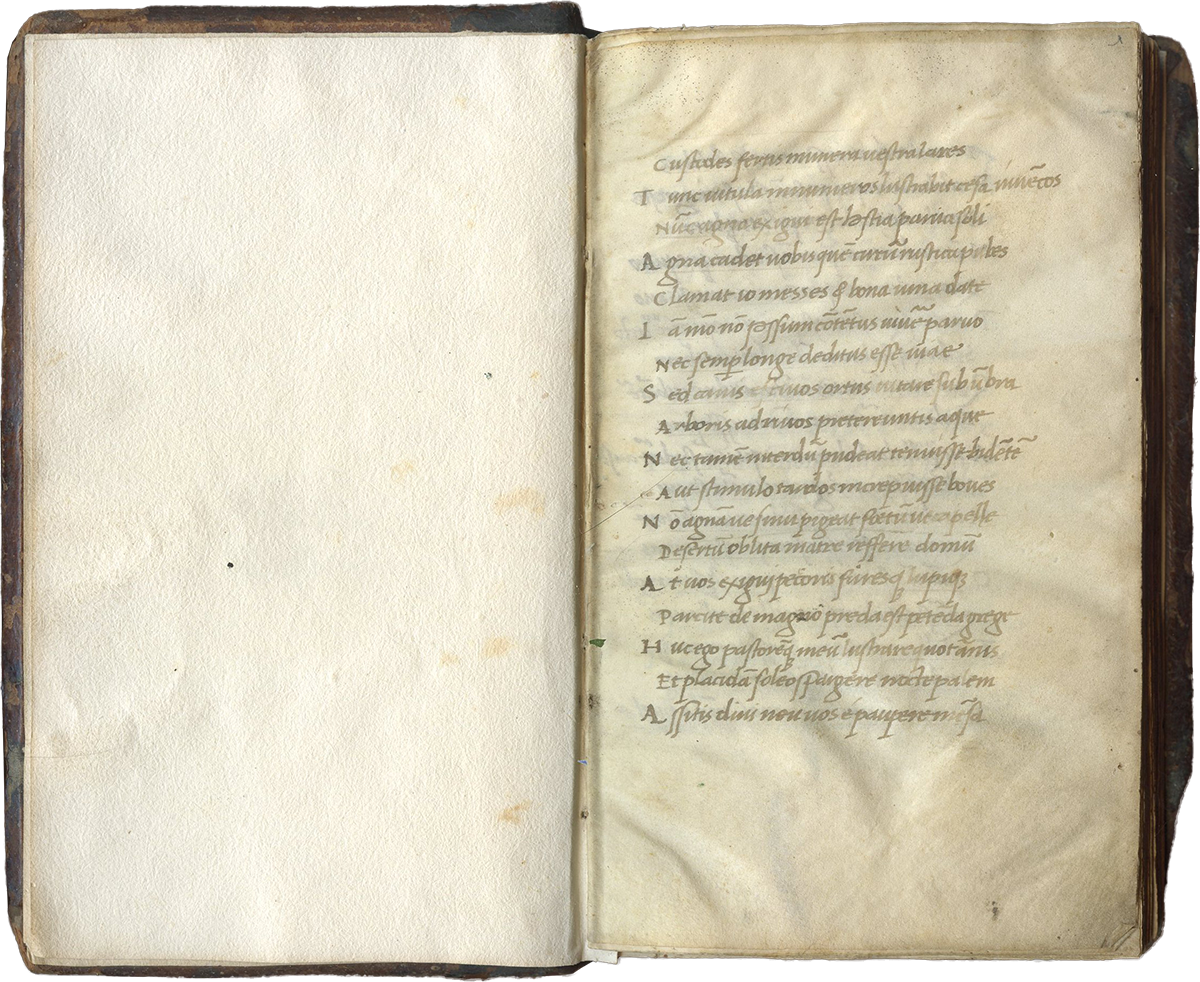 Custodes fertis munera uestra lares
Tunc uitula innumeros lustrabat cesa iuuẽcos
Nũc agna exigui est hostia parua soli
Agna cadet uobis quẽ circũ rustica pubes
Clamat io messes & bona uina date
Iã mõ nõ possum cõtẽtus uiuẽ paruo
Nec semp longe deditus esse uiae
Sed canis estiuos ortus uitare sub ũbra
Arboris ad riuos pretereuntis aque
Nec tamẽ interdũ pudeat tenuisse bidẽtẽ
Aut stimulo tardos increpuisse boues
Nõ agnãue sinu pigeat foetũue capelle
Desertũ oblita matre refferre domũ
At uos exigui pecoris furesq lupiq
Parcite de magno preda est petẽda grege
Huc ego pastoreq meũ lustrare quotãnis
Et placidã soleo spargere nocte palem
Assitis diui neu uos e paupere mẽsa